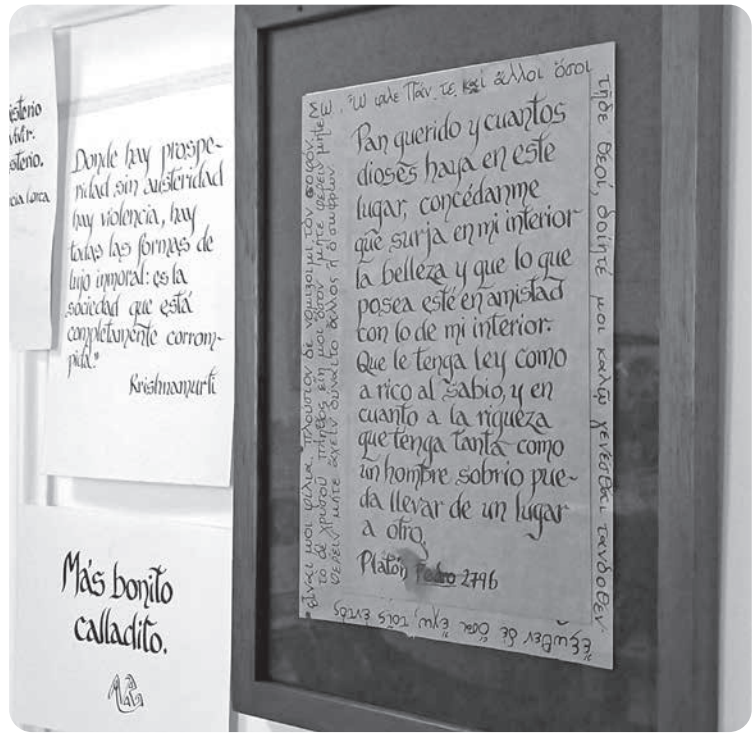 isterio
vivir.
sterio.
cía Lorca
Donde hay prospe-
ridad sin austeridad
hay violencia, hay
todas las formas de
lujo inmoral: es la
sociedad que está
completamente corrom-
pida."
Krishnamurti
Más bonito
calladito.
Ὦ φίλε Πάν, τε καί άλλοι όσοι
τῇδε θεοί, δοίητέ μοι καλῷ γενέσθαι τανδοθεν
ἔξωθεν δέ ὅσα ἔχω, τοῖς ἐντός
εἶναί μοι φίλια. πλούσιον δέ νομίζοιμι τόν σοφόν.
το δέ χρυσοῦ πλῆθος εἴη μοι ὅσον μήτε φέρειν μήτε
Pan querido y cuantos
dioses haya en este
lugar, concédanme
que surja en mi interior
la belleza y que lo que
posea esté en amistad
con lo de mi interior.
Que le tenga ley como
a rico al sabio, y en
cuanto a la riqueza
que tenga tanta como
un hombre sobrio pue-
da llevar de un lugar
a otro.
Platón Fedro 279b